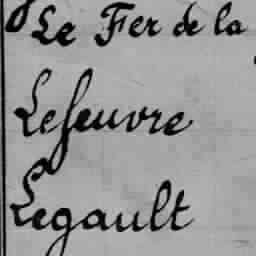 Le Fer de la
Lefeuvre
Legault